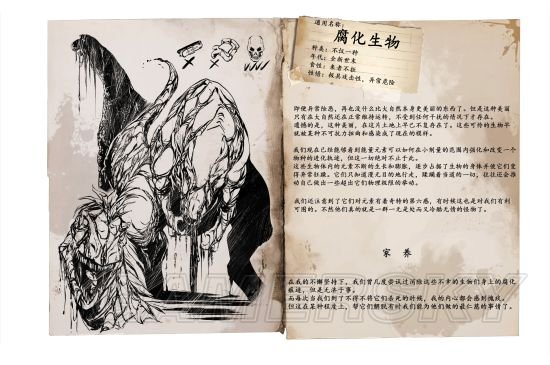 通用名称:
腐化生物
种类：不仅一种
年代：全新世末
食性：来者不拒
性情：极具攻击性，异常危险
即使异常险恶，再也没什么比大自然本身更美丽的东西了。但是这种美丽
只有在大自然还在正常维持运转，不受到任何干扰的情况下才存在。
遗憾的是，这种美丽，在这片土地上早已不复存在了。这些可怜的生物早
就被某种不可抗力扭曲和感染成了现在的模样。
我们现在已经能够看到能量元素可以如何在小剂量的范围内强化和改变一个
物种的进化轨迹，但这一切绝对不止于此。
这些生物体内的元素不断的生长和膨胀，逐步占据了生物的身体并使它们变
得异常狂躁。它们只知道漫无目的地行走，蹂躏着当道的一切，往往还会推
动自己做出一些超出它们物理极限的举动。
我们还注意到了它们对元素有着奇特的第六感，有时候这也是对我们有利
可图的。不然他们真的就是一群一无是处而又冷酷无情的怪物了。
家 养
在我的不懈坚持下，我们曾几度尝试过消除这些不幸的生物们身上的腐化
痕迹，但是无济于事。
而每次当我们到了不得不将它们杀死的时候，我的内心都会感到愧疚。
但这在某种程度上，帮它们解脱有时我们能为他们做的最仁慈的事情了。